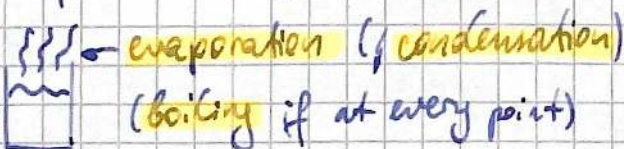 ← evaporation (& condensation)
(boiling if at every point)